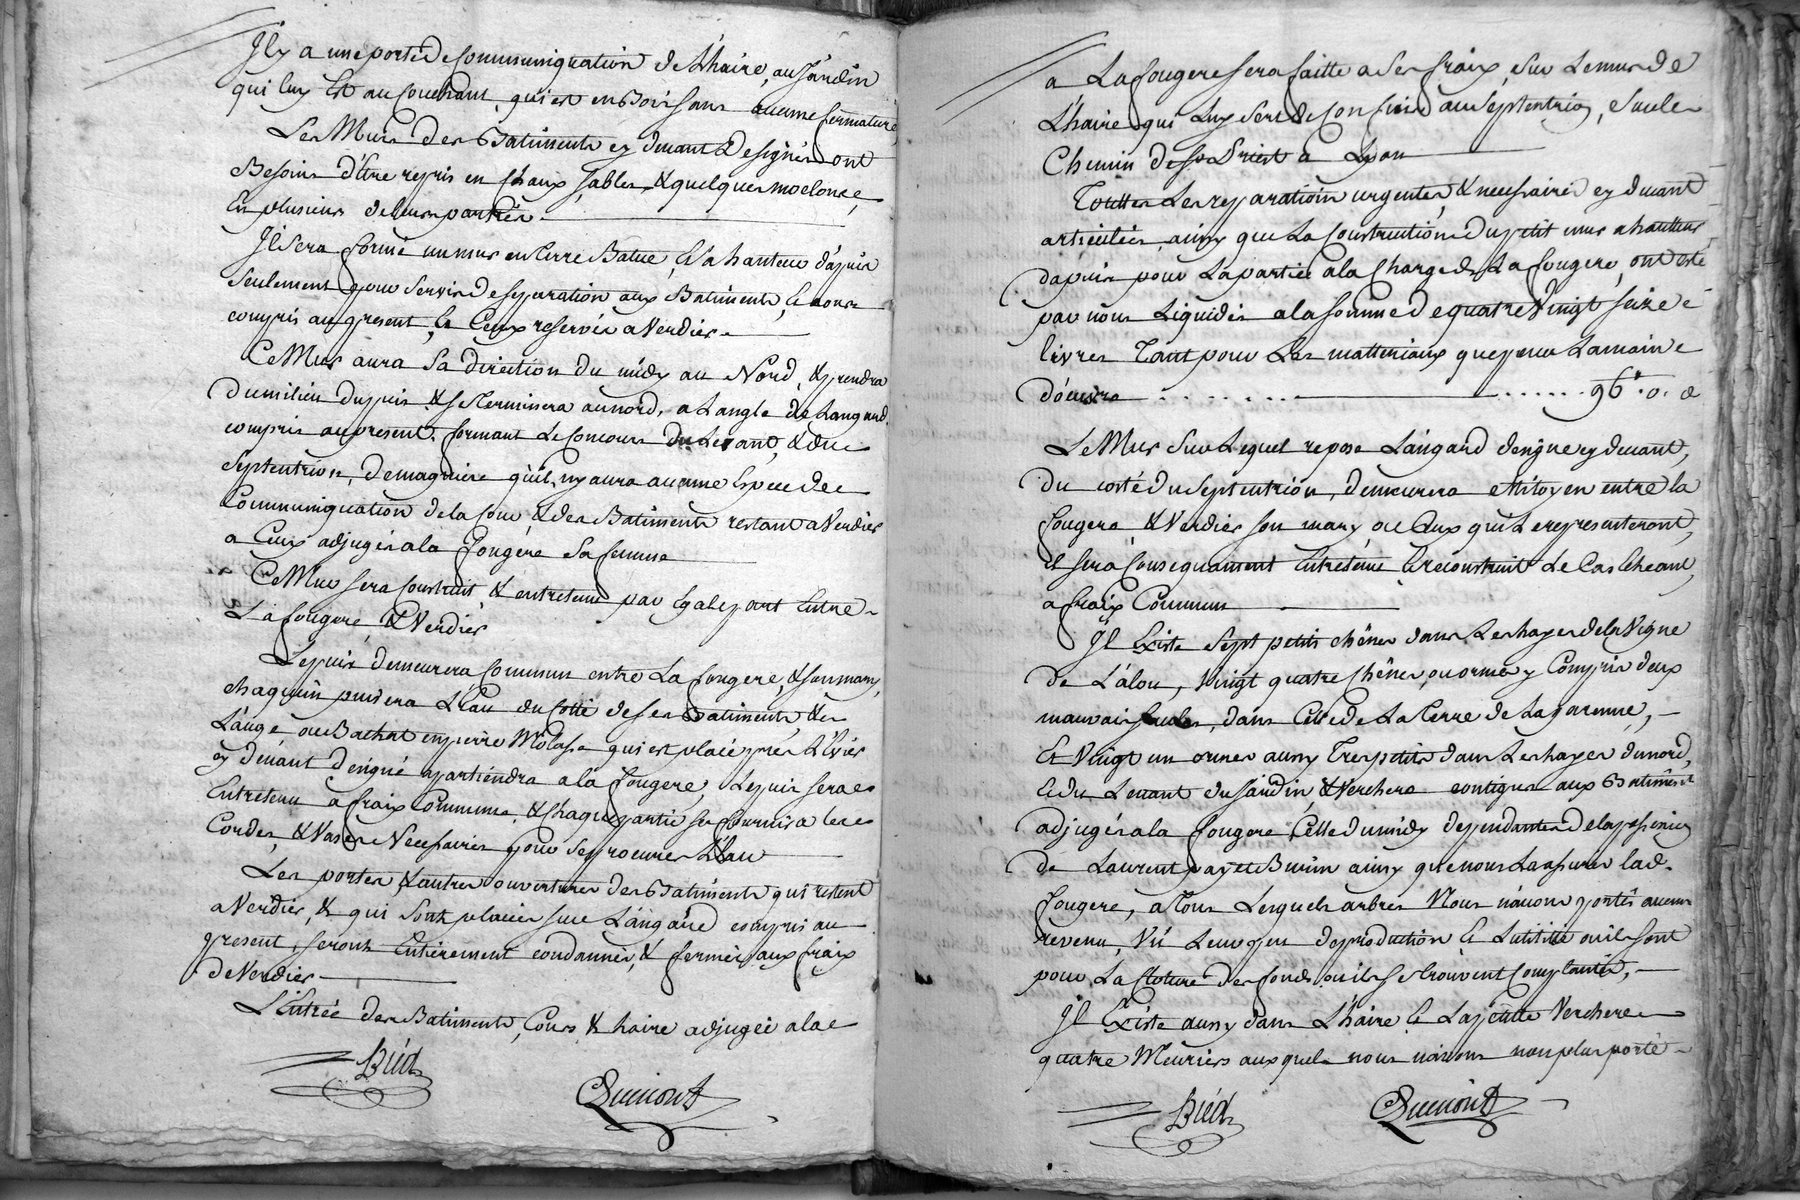 Il y a une porte de communiquation de Lhaire, au Jardin
qui luy Est au Couchant, qui est en Bois sans aucune fermature,
Les Murs des Batiments cy devant Designés ont
Besoins d'être repris en Chaux, sables, & quelques moelons,
En plusieurs de leurs parties.
Il sera formé un mur en terre Batue, Et a hauteur d'apuis
seulement pour servir de separation aux Batiments, & cours
compris au present, & Ceux reservés a Verdier.
Ce Mur aura sa direction du midy au Nord, & prendra
du milieu du puis & se terminera au nord, a L'angle de Langard
compris au present, formant Le Concours du Levant, & du
septentrion, de maguiere qu'il ny aura aucune Espece de
Communiquation de la Cour, & des Batiments restant a Verdier
a Ceux adjugés a la fougere sa femme
Ce Mur sera Construit & entretenu par Egale part Entre
La fougere, & Verdier
Le puis demeurera Commun entre La fougere, & son mary,
chaquun puisera L'Eau du Cotté de ses Batiments, &
L'auge ou Bachat en pierre Molasse qui est placée près L'Evier
cy devant designé apartiendra a la fougere, Le puis sera
Entretenu a fraix Communs, & Chaque partie se fournira les
Cordes, & Vases Necessaires pour se procurer L'Eau
Les portes & autres ouvertures des Batiments qui restent
a Verdier, & qui sont placées sur L'angard compris au
present, seront Entierement condannés, & fermés aux fraix
de Verdier
L'Entrée des Batiments, Cours & haire adjugée a la
Biéd
Quinont
a La fougere sera faitte a ses fraix, sur Le mur de
L'haire qui Luy sert de Confin au septentrion, & sur le
Chemin de St Priest a Lyon
Toutes Les reparations urgentes, & necessaires cy devant
articulées, ainsy que La Construction du petit mur a hautteur
dapuis pour La partie a la Charge de La fougere, ont eté
par nous Liquidés a la somme de quatre Vingt seize
livres Tant pour Les matteriaux que pour La main
d'œuvre . . . . . . . . . . . . . 96# . 0 . 0
Le Mur sur Lequel repose L'angard designé cy devant,
du costé du septentrion, demeurera Mitoyen entre la
fougere, & Verdier son mary, ou Ceux qui Le representeront,
Et sera Consequament Entretenu & reconstruit Le Cas Echeant,
a fraix Communs
Il Existe sept petits chênes dans Les hayes de la Vigne
de L'alou, Vingt quatre Chênes, ou ormes y Compris deux
mauvais saules, dans Celle de La Terre de La garenne,
Et Vingt un ormes aussy Tres petits dans Les hayes du nord,
Et du Levant du Jardin, & Verchere contigus aux Batiments
adjugés a la fougere, Celle du midy dependantes de la possession
de Laurent payet Burin ainsy que nous La assuré lad.
fougere, a Tous Lesquels arbres Nous n'avons portés aucun
revenu, Vu Leur peu de production, & L'utilité ou ils sont
pour La Cloture des fonds ou ils se trouvent Complantés,
Il Existe aussy dans L'haire & La petitte Verchere
quatre Meuriers auxquels nous n'avons non plus porté
Biéd
Quinont